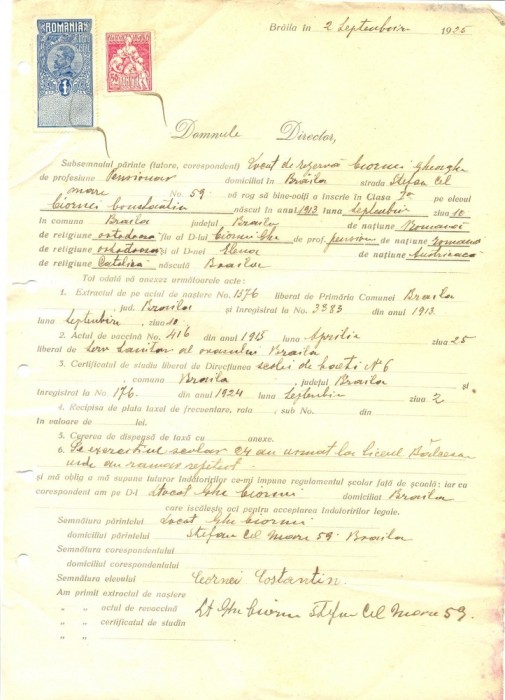 ROMANIA
1
50
Brăila în 2 Septembrie 1925
Domnule Director,
Subsemnatul părinte (tutore, corespondent) Locot de rezervă Ciornei Gheorghe
de profesiune Pensionar domiciliat în Brăila strada Stefan Cel
mare No. 59 vă rog să bine-voiţi a înscrie în Clasa pe elevul
Ciornei Constantin născut în anul 1913 luna Septembrie ziua 10
în comuna Braila judeţul Braila de naţiune Romană
de religiune ortodoxă fiu al D-lui Ciornei Ghe de prof. pension de naţiune romana
de religiune ortodoxa şi al D-nei Elena de naţiune Austriacă
de religiune Catolica născută Braila
Tot odată vă anexez următoarele acte:
1. Extractul de pe actul de naştere No. 1576 liberat de Primăria Comunei Braila
, jud. Braila şi înregistrat la No. 3383 din anul 1913
luna Septembrie, ziua 10.
2. Actul de vaccină No. 416 din anul 1915 luna Aprilie ziua 25
liberat de Serv Sanitar al orasului Braila
3. Certificatul de studii liberat de Direcţiunea scolei de baeti N 6
, comuna Braila, judeţul Braila şi
înregistrat la No. 176. din anul 1924 luna Septembrie ziua 2
4. Recipisa de plata taxei de frecventare, rata , sub No. din
în valoare de lei.
5. Cererea de dispensă de taxă cu anexe.
6. Pe exercitiul scolar 24 au urmat la liceul
unde au ramas repetent.
şi mă oblig a mă supune tuturor îndatoririlor ce-mi impune regulamentul şcolar faţă de şcoală; iar cu
corespondent am pe D-l Locot Ghe Ciornei domiciliat Braila
care iscăleşte aci pentru acceptarea îndatoririlor legale.
Semnătura părintelui Locot Ghe Ciornei
domiciliul părintelui Stefan Cel Mare 59. Braila
Semnătura corespondentului
domiciliul corespondentului
Semnătura elevului Ciornei Costantin.
Am primit extractul de naştere
„ „ actul de revaccină Lt Ghe Ciornei Stefan Cel Mare 59.
„ „ certificatul de studiu
„ „